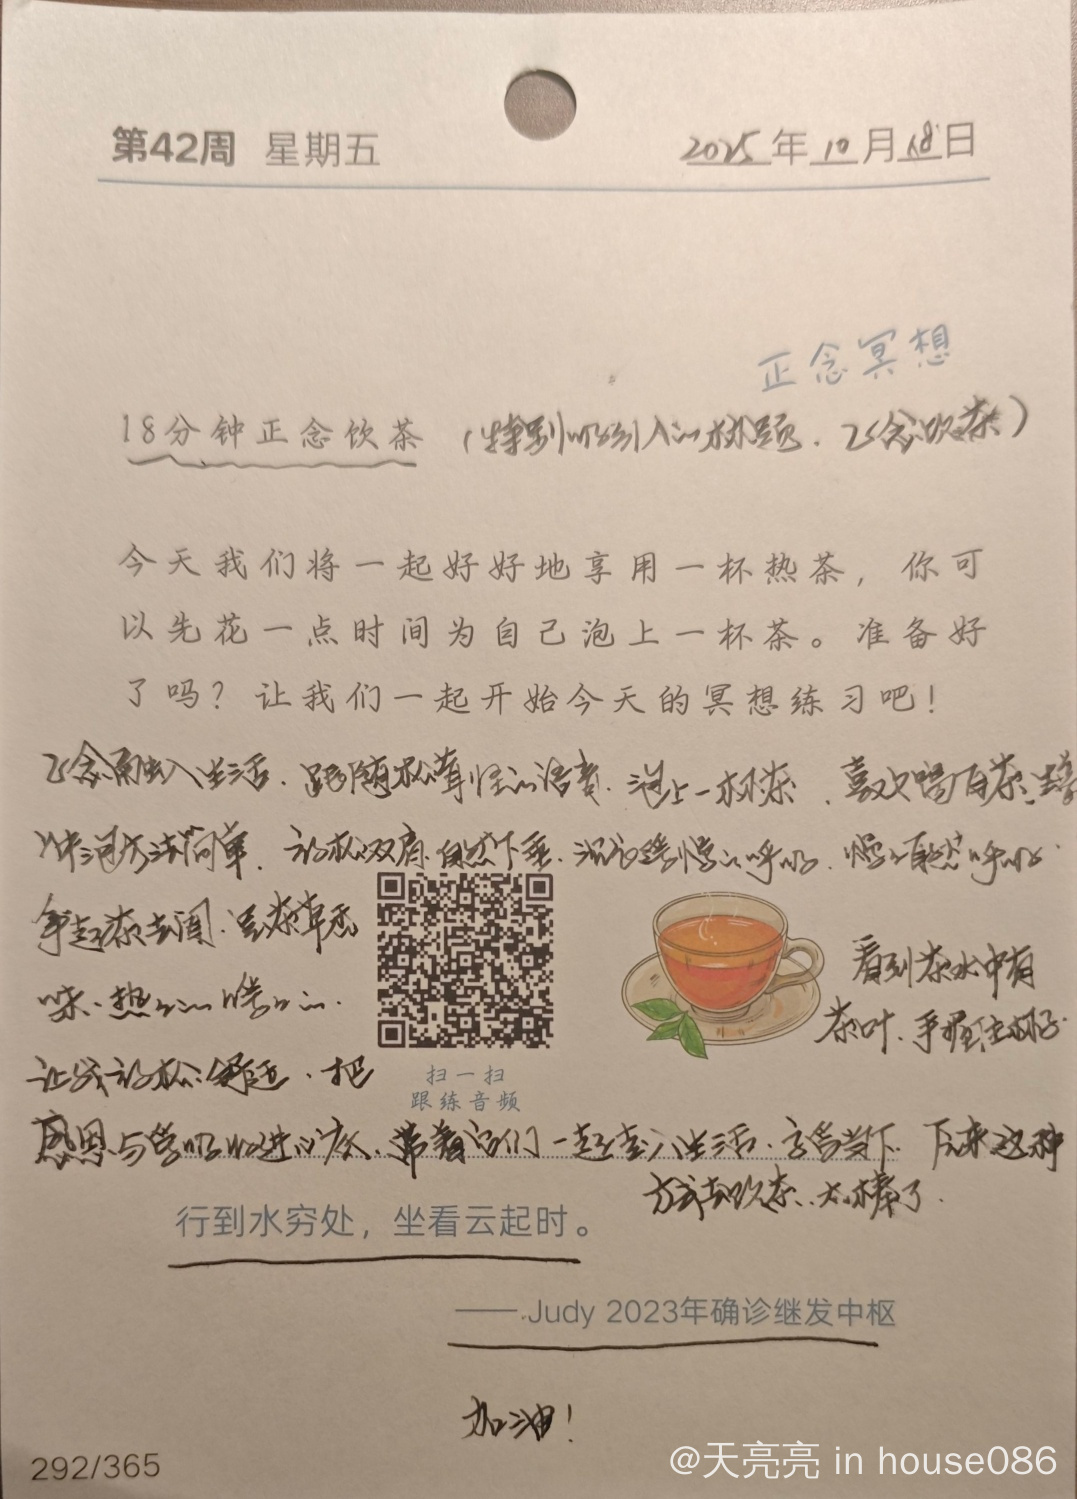 第42周 星期五 2025年10月18日
正念冥想
18分钟正念饮茶 (特别吸引人的标题.正念饮茶)
今天我们将一起好好地享用一杯热茶，你可
以先花一点时间为自己泡上一杯茶。准备好
了吗？让我们一起开始今天的冥想练习吧！
正念融入生活.跟随松青姐的语音.泡上一杯茶.喜欢喝白茶.
冲泡方法简单.放松双肩.自然下垂.沉沉缓慢的呼吸.慢慢自然呼吸.
拿起茶去闻.是茶草香
味.热热的 暖暖的.
看到茶水中有
茶叶.手握住杯子.
让我放松舒适.把
扫一扫
跟练音频
感恩与喜悦收进心底.带着它们一起走入生活.享受当下.原来这种
方式去饮茶.太棒了.
行到水穷处，坐看云起时。
——Judy 2023年确诊继发中枢
加油！
292/365
@天亮亮 in house086